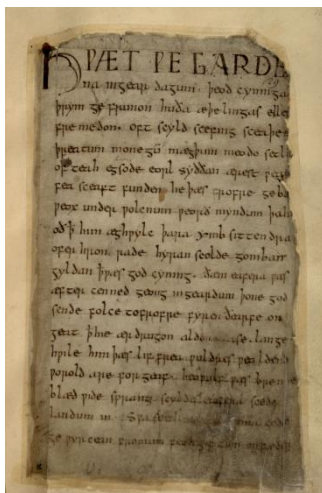 HǷÆT ǷE GARDE
na ingear dagum. þeod cyninga
þrym ge frunon huða æþelingas elle
fremedon. oft scyld scefing sceaþe
þreatum monegū mægþum meodo setl
of teah egsode eorl syððan ærest ƿear
fea sceaft funden he þæs frofre geba
ƿeox under ƿolcnum ƿeorð myndum þah
oð þ̄ him æghƿylc þara ymb sittendra
ofer hron rade hyran scolde gomban
gyldan þæt ƿæs god cyning. ðæm eafera ƿæs
æfter cenned geong ingeardum þone god
sende folce tofrofre fyren ðearfe on
geat þ̄ hie ær drugon aldor ase. lange
hƿile him þæs lif frea ƿuldres ƿealdend
ƿorold are for geaf. beoƿulf ƿæs breme
blæd ƿide sprang scyldes eafera scede
landum in. Sƿa guma gode
ge ƿyrcean fromum feoh giftum on fæder